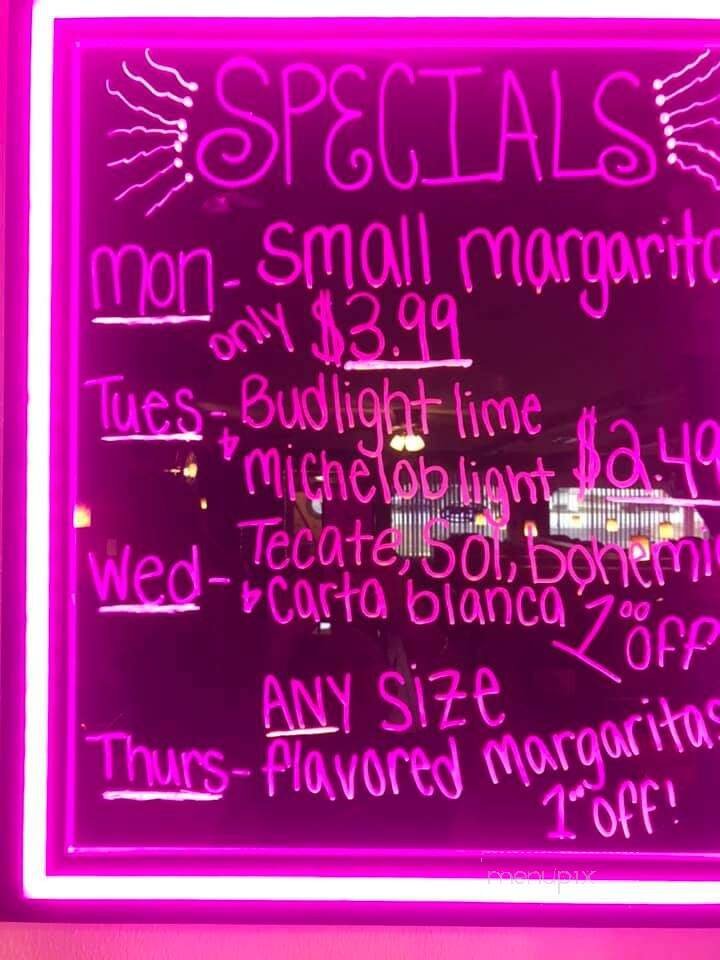 SPECIALS
Mon - Small margarita
only $3.99
Tues - Budlight lime
+ Micheloblight $2.49
Wed - Tecate, Sol, bohemi
+ Carta blanca 1⁰⁰ off
ANY Size
Thurs - flavored Margaritas
1⁰⁰ off!
menupix